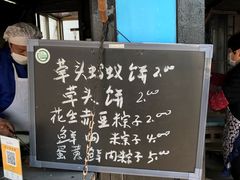 草头蚂蚁饼 2.00
草头饼 2.00
花生赤豆粽子 2.00
鲜肉粽子 4.00
蛋黄鲜肉粽子 5.00